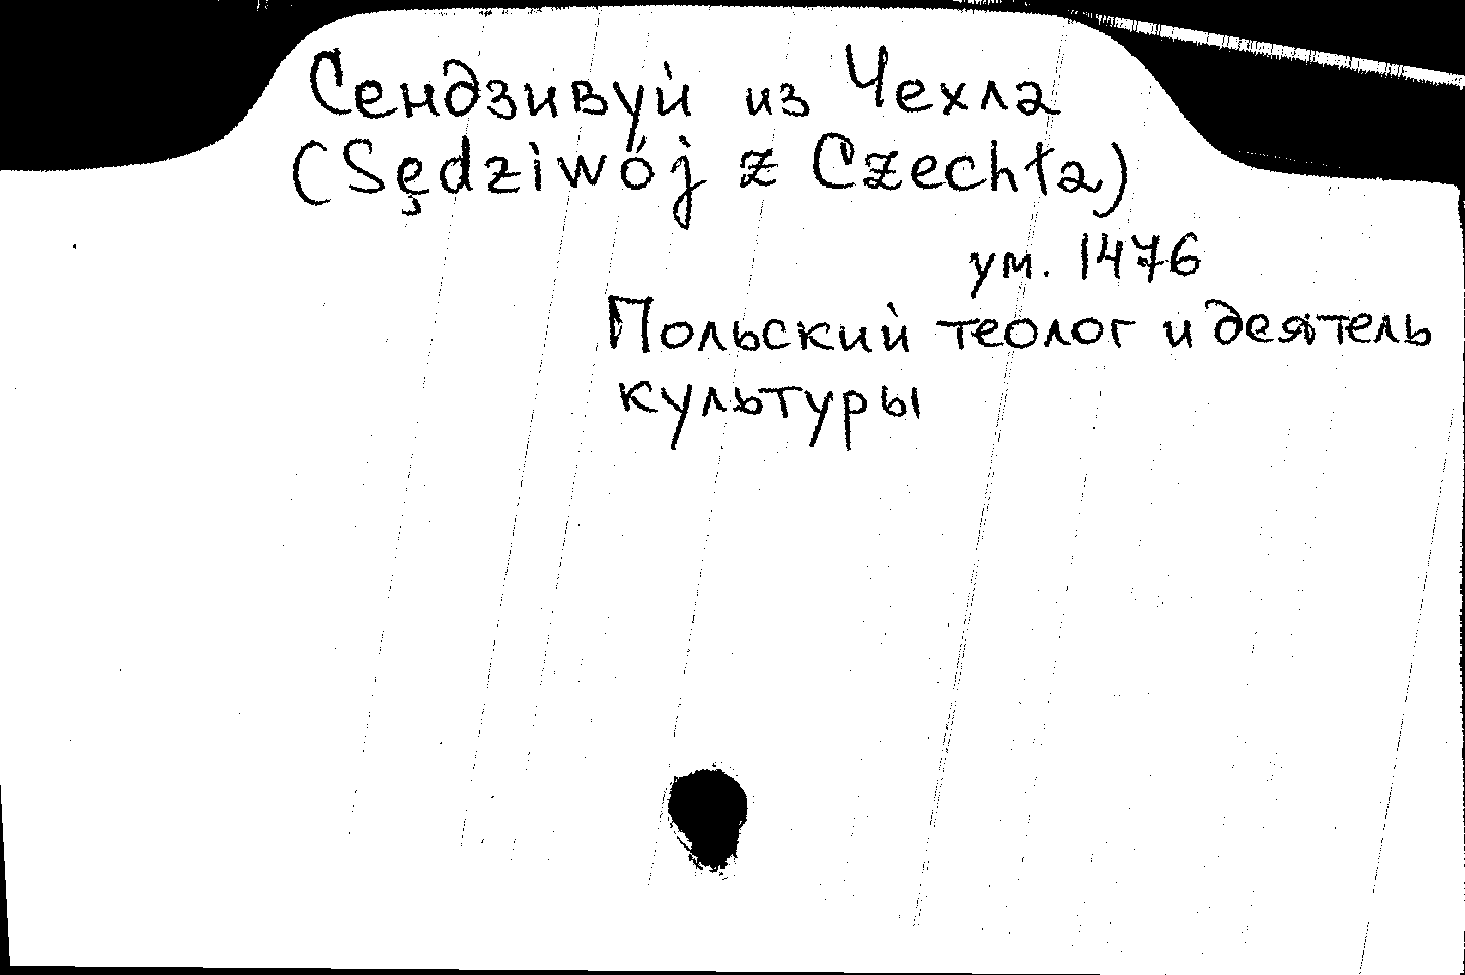 Сендзивуй из Чехла
(Sędziwój z Czechła)
ум. 1476
Польский теолог и деятель
культуры